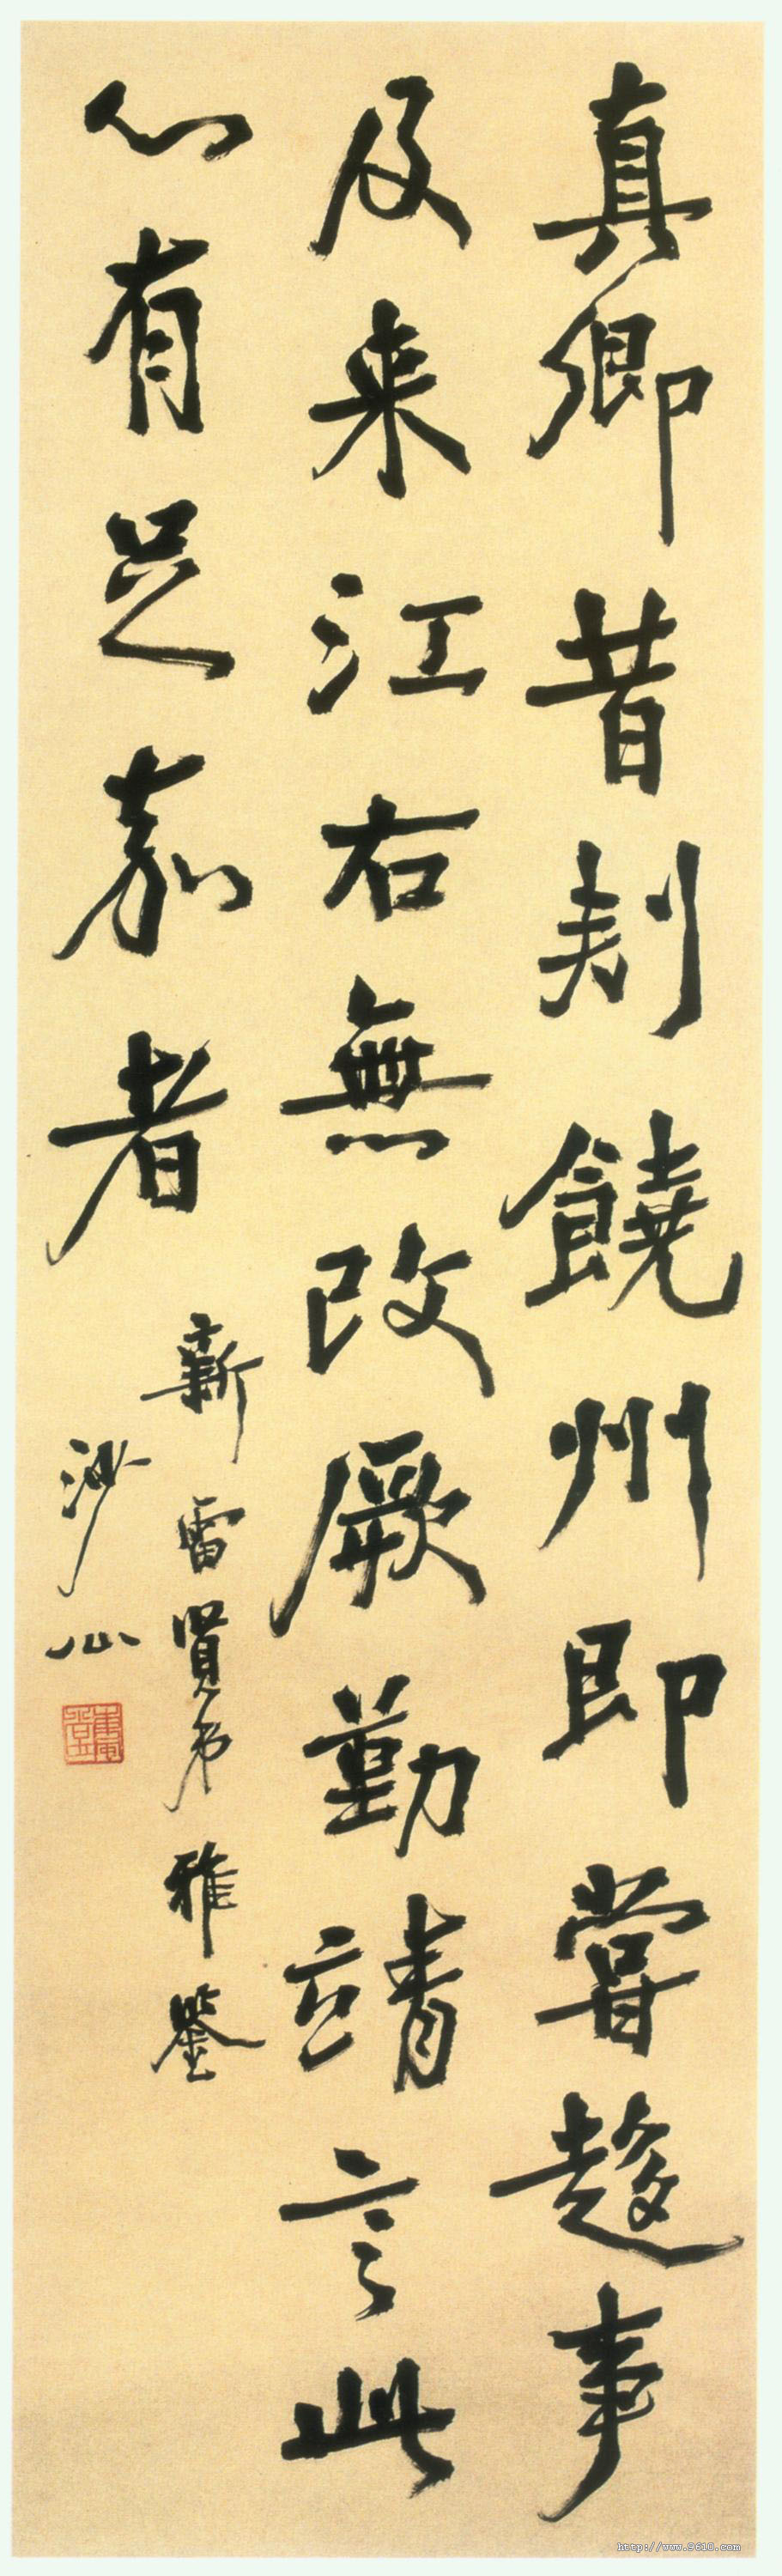 真卿昔刾饒州即嘗趍事
及来江右無改厥勤靖言此
心有足嘉者
新雷賢弟雅鑒
沙
http://www.9610.com